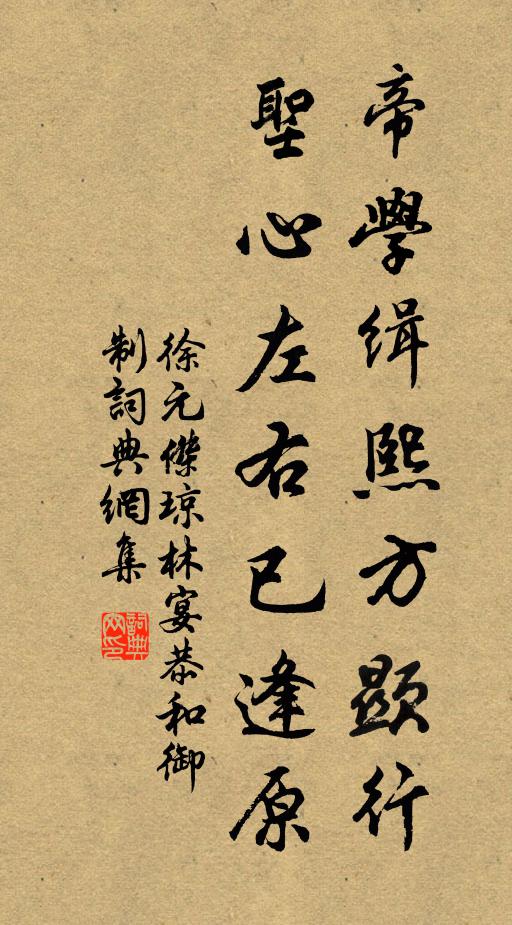 帝學緝熙方顯行
聖心左右已逢原
徐元傑琼林宴恭和御
制詞典網集
詞典網印